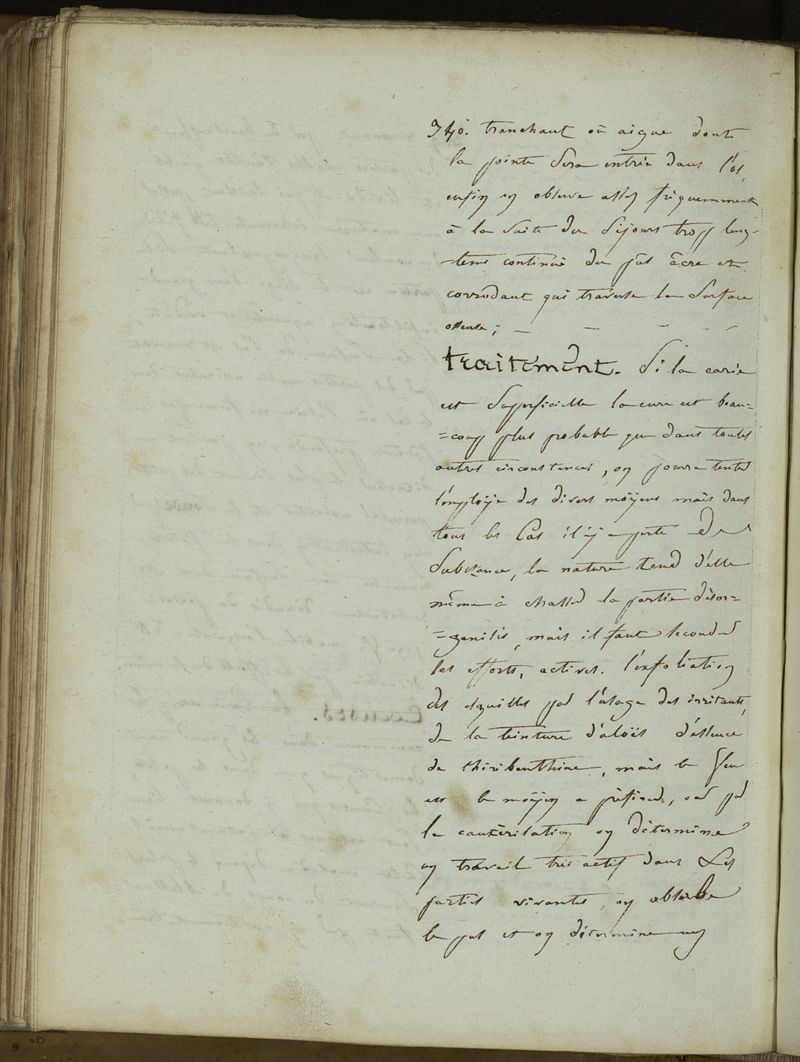 340. tranchant où aigue dont
la pointe sera entrée dans l'os,
enfin on observe assez fréquemment
à la suite du séjours trop long-
-tems continué du pus âcre et
corrodant qui traverse la surface
osseuse;
traitement. Si la carie
est superficielle la cure est beau=
=coup plus probable que dans toutes
autres circonstances, on pourra tenter
l'employe des divers moÿens mais dans
tous les Cas il ÿ a perte de
Substance, la nature tend d'elle
même à chasser la partie désor=
=ganisés, mais il faut seconder
les efforts, activer. l'exfoliation
des esquilles par l'usage des irritants,
de la teinture d'aloës d'essence
de thiribenthine, mais le feu
est le moÿen a préférer, car par
la cautérisation on détermine
un travail tres actif dans Les
parties vivantes, on absorbe
le pus et on détermine un
Causes.